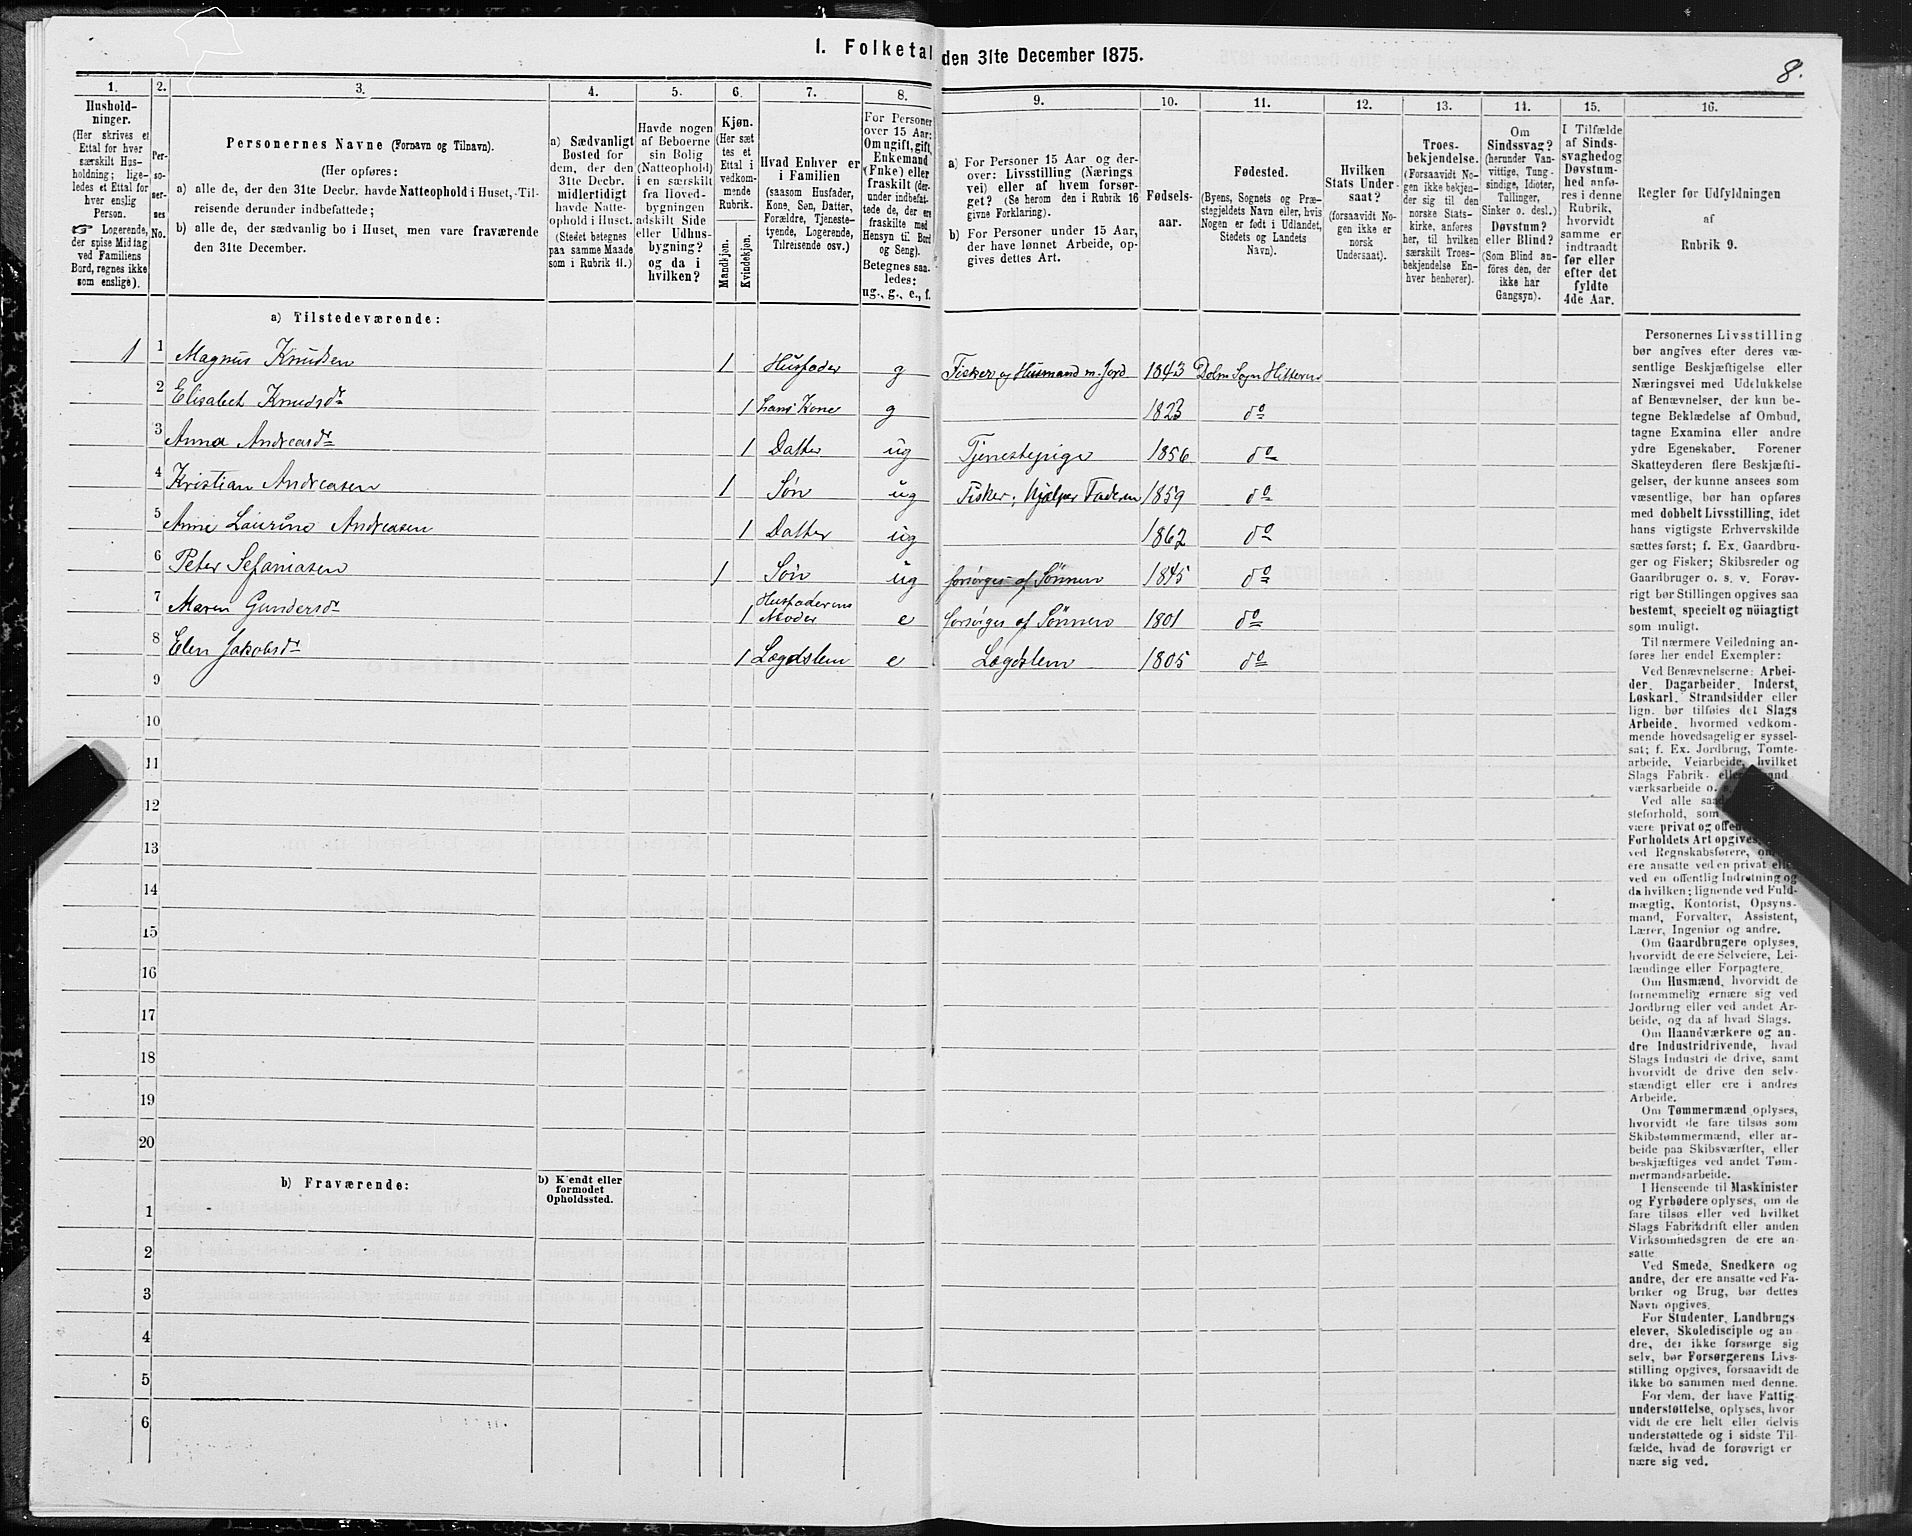 I. Folketal den 31te December 1875.
8.
1.
Hushold-
ninger.
(Her skrives et
Ettal for hver
særskilt Hus-
holdning; lige-
ledes et Ettal for
hver enslig
Person.
☞ Logerende,
der spise Middag
ved Familiens
Bord, regnes ikke
som enslige).
2.
Per-
so-
ner-
nes
No.
3.
Personernes Navne (Fornavn og Tilnavn).
(Her opføres:
a) alle de, der den 31te Decbr. havde Natteophold i Huset, Til-
reisende derunder indbefattede;
b) alle de, der sædvanlig bo i Huset, men vare fraværende
den 31te December.
4.
a) Sædvanligt
Bosted for
dem, der den
31te Decbr.
midlertidigt
havde Natte-
ophold i Huset.
(Stedet betegnes
paa samme Maade
som i Rubrik 11.)
5.
Havde nogen
af Beboerne
sin Bolig
(Natteophold)
i en særskilt
fra Hoved-
bygningen
adskilt Side
eller Udhus-
bygning?
og da i
hvilken?
6.
Kjøn.
(Her sæt
tes et
Ettal i
vedkom-
mende
Rubrik.
Mandkjøn.
Kvindekjøn.
7.
Hvad Enhver er
i Familien
(saasom Husfader,
Kone, Søn, Datter,
Forældre, Tjeneste-
tyende, Logerende,
Tilreisende osv.)
8.
For Personer
over 15 Aar:
Om ugift, gift,
Enkemand
(Enke) eller
fraskilt (der-
under indbefat-
tede de, der ere
fraskilte med
Hensyn til Bord
og Seng).
Betegnes saa-
ledes:
ug., g., e., f.
9.
a) For Personer 15 Aar og der-
over: Livsstilling (Nærings
vei) eller af hvem forsør-
get? (Se herom den i Rubrik 16
givne Forklaring).
b) For Personer under 15 Aar,
der have lønnet Arbeide, op-
gives dettes Art.
10.
Fødsels-
aar.
11.
Fødested.
(Byens, Sognets og Præ-
stegjeldets Navn eller, hvis
Nogen er født i Udlandet,
Stedets og Landets
Navn).
12.
Hvilken
Stats Under-
saat?
(forsaavidt No-
gen ikke er
norsk
Undersaat).
13.
Troes-
bekjendelse.
(Forsaavidt No-
gen ikke bekjen-
der sig til den
norske Stats-
kirke, anføres
her, til hvilken
særskilt Troes-
bekjendelse En-
hver henhører).
14.
Om
Sindssvag?
(herunder Van-
vittige, Tung-
sindige, Idioter,
Tullinger,
Sinker o. desl.)
Døvstum?
eller Blind?
(Som Blind an-
føres den, der
ikke har
Gangsyn).
15.
I Tilfælde
af Sinds-
svaghed og
Døvstum-
hed anfø-
res i denne
Rubrik,
hvorvidt
samme er
indtraadt
før eller
efter det
fyldte
4de Aar.
16.
Regler før Udfyldningen
af
Rubrik 9.
a) Tilstedeværende:
1 1 Magnus Knudsen 1 Husfader g Fisker og Husmand m. Jord 1843 Dolm Sogn Hitteren
2 Elisabet Knudsdr 1 hans Kone g 1823 do
3 Anna Andreasdr 1 Datter ug Tjenestepige 1856 do
4 Kristian Andreasen 1 Søn ug Fisker, hjælper Faderen 1859 do
5 Anne Laurine Andreasen 1 Datter ug 1862 do
6 Peter Sefaniasen 1 Søn ug forsørges af Sønnen 1845 do
7 Maren Gundersdr 1 Husfaderens Moder e forsørges af Sønnen 1801 do
8 Elen Jakobsdr 1 Lægdslem e Lægdslem 1805 do
9
10
11
12
13
14
15
16
17
18
19
20
b) Fraværende:
b) Kjendt eller
formodet
Opholdssted.
1
2
3
4
5
6
Personernes Livsstilling
bør angives efter deres væ-
sentlige Beskjæftigelse eller
Næringsvei med Udelukkelse
af Benævnelser, der kun be-
tegne Beklædelse af Ombud,
tagne Examina eller andre
ydre Egenskaber. Forener
Skatteyderen flere Beskjæfti-
gelser, der kunne ansees som
væsentlige, bør han opføres
med dobbelt Livsstilling, idet
hans vigtigste Erhvervskilde
sættes først; f. Ex. Gaardbru-
ger og Fisker; Skibsreder og
Gaardbruger o. s. v. Forøv-
rigt bør Stillingen opgives saa
bestemt, specielt og nöiagtigt
som muligt.
Til nærmere Veiledning an-
føres her endel Exempler:
Ved Benævnelserne: Arbei-
der, Dagarbeider, Inderst,
Løskarl, Strandsidder eller
lign. bør tilføies det Slags
Arbeide, hvormed vedkom-
mende hovedsagelig er syssel-
sat; f. Ex. Jordbrug, Tomte-
arbeide, Veiarbeide, hvilket
Slags Fabrik- eller
værksarbeide o.
Ved alle
steforhold, som
være privat og
Forholdets Art opgives,
ved Regnskabsførere,
ere ansatte ved en privat
ved en offentlig Indretning og
da hvilken; lignende ved Fuld-
mægtig, Kontorist, Opsyns-
mand, Forvalter, Assistent,
Lærer, Ingeniør og andre.
Om Gaardbrugere oplyses,
hvorvidt de ere Selveiere, Lei-
lændinge eller Forpagtere.
Om Husmænd, hvorvidt de
fornemmelig ernære sig ved
Jordbrug eller ved andet Ar-
beide, og da af hvad Slags.
Om Haandværkere og an-
dre Industridrivende, hvad
Slags Industri de drive, samt
hvorvidt de drive den selv-
stændigt eller ere i andres
Arbeide.
Om Tømmermænd oplyses,
hvorvidt de fare tilsøs som
Skibstømmermænd, eller ar-
beide paa Skibsværfter, eller
beskjæftiges ved andet Tøm-
mermandsarbeide.
I Henseende til Maskinister
og Fyrbødere oplyses, om de
fare tilsøs eller ved hvilket
Slags Fabrikdrift eller anden
Virksomhedsgren de ere an-
satte
Ved Smede, Snedkere og
andre, der ere ansatte ved Fa-
briker og Brug, bør dettes
Navn opgives.
For Studenter, Landbrugs
elever, Skoledisciple og an
dre, der ikke forsørge sig
selv, bør Forsørgerens Livs-
stilling opgives, forsaavidt de
ikke bo sammen med denne.
For dem, der have Fattig
understøttelse, oplyses, hvor
vidt de ere helt eller delvis
understøttede og i sidste Til-
fælde, hvad de forøvrigt er
nære sig ved.